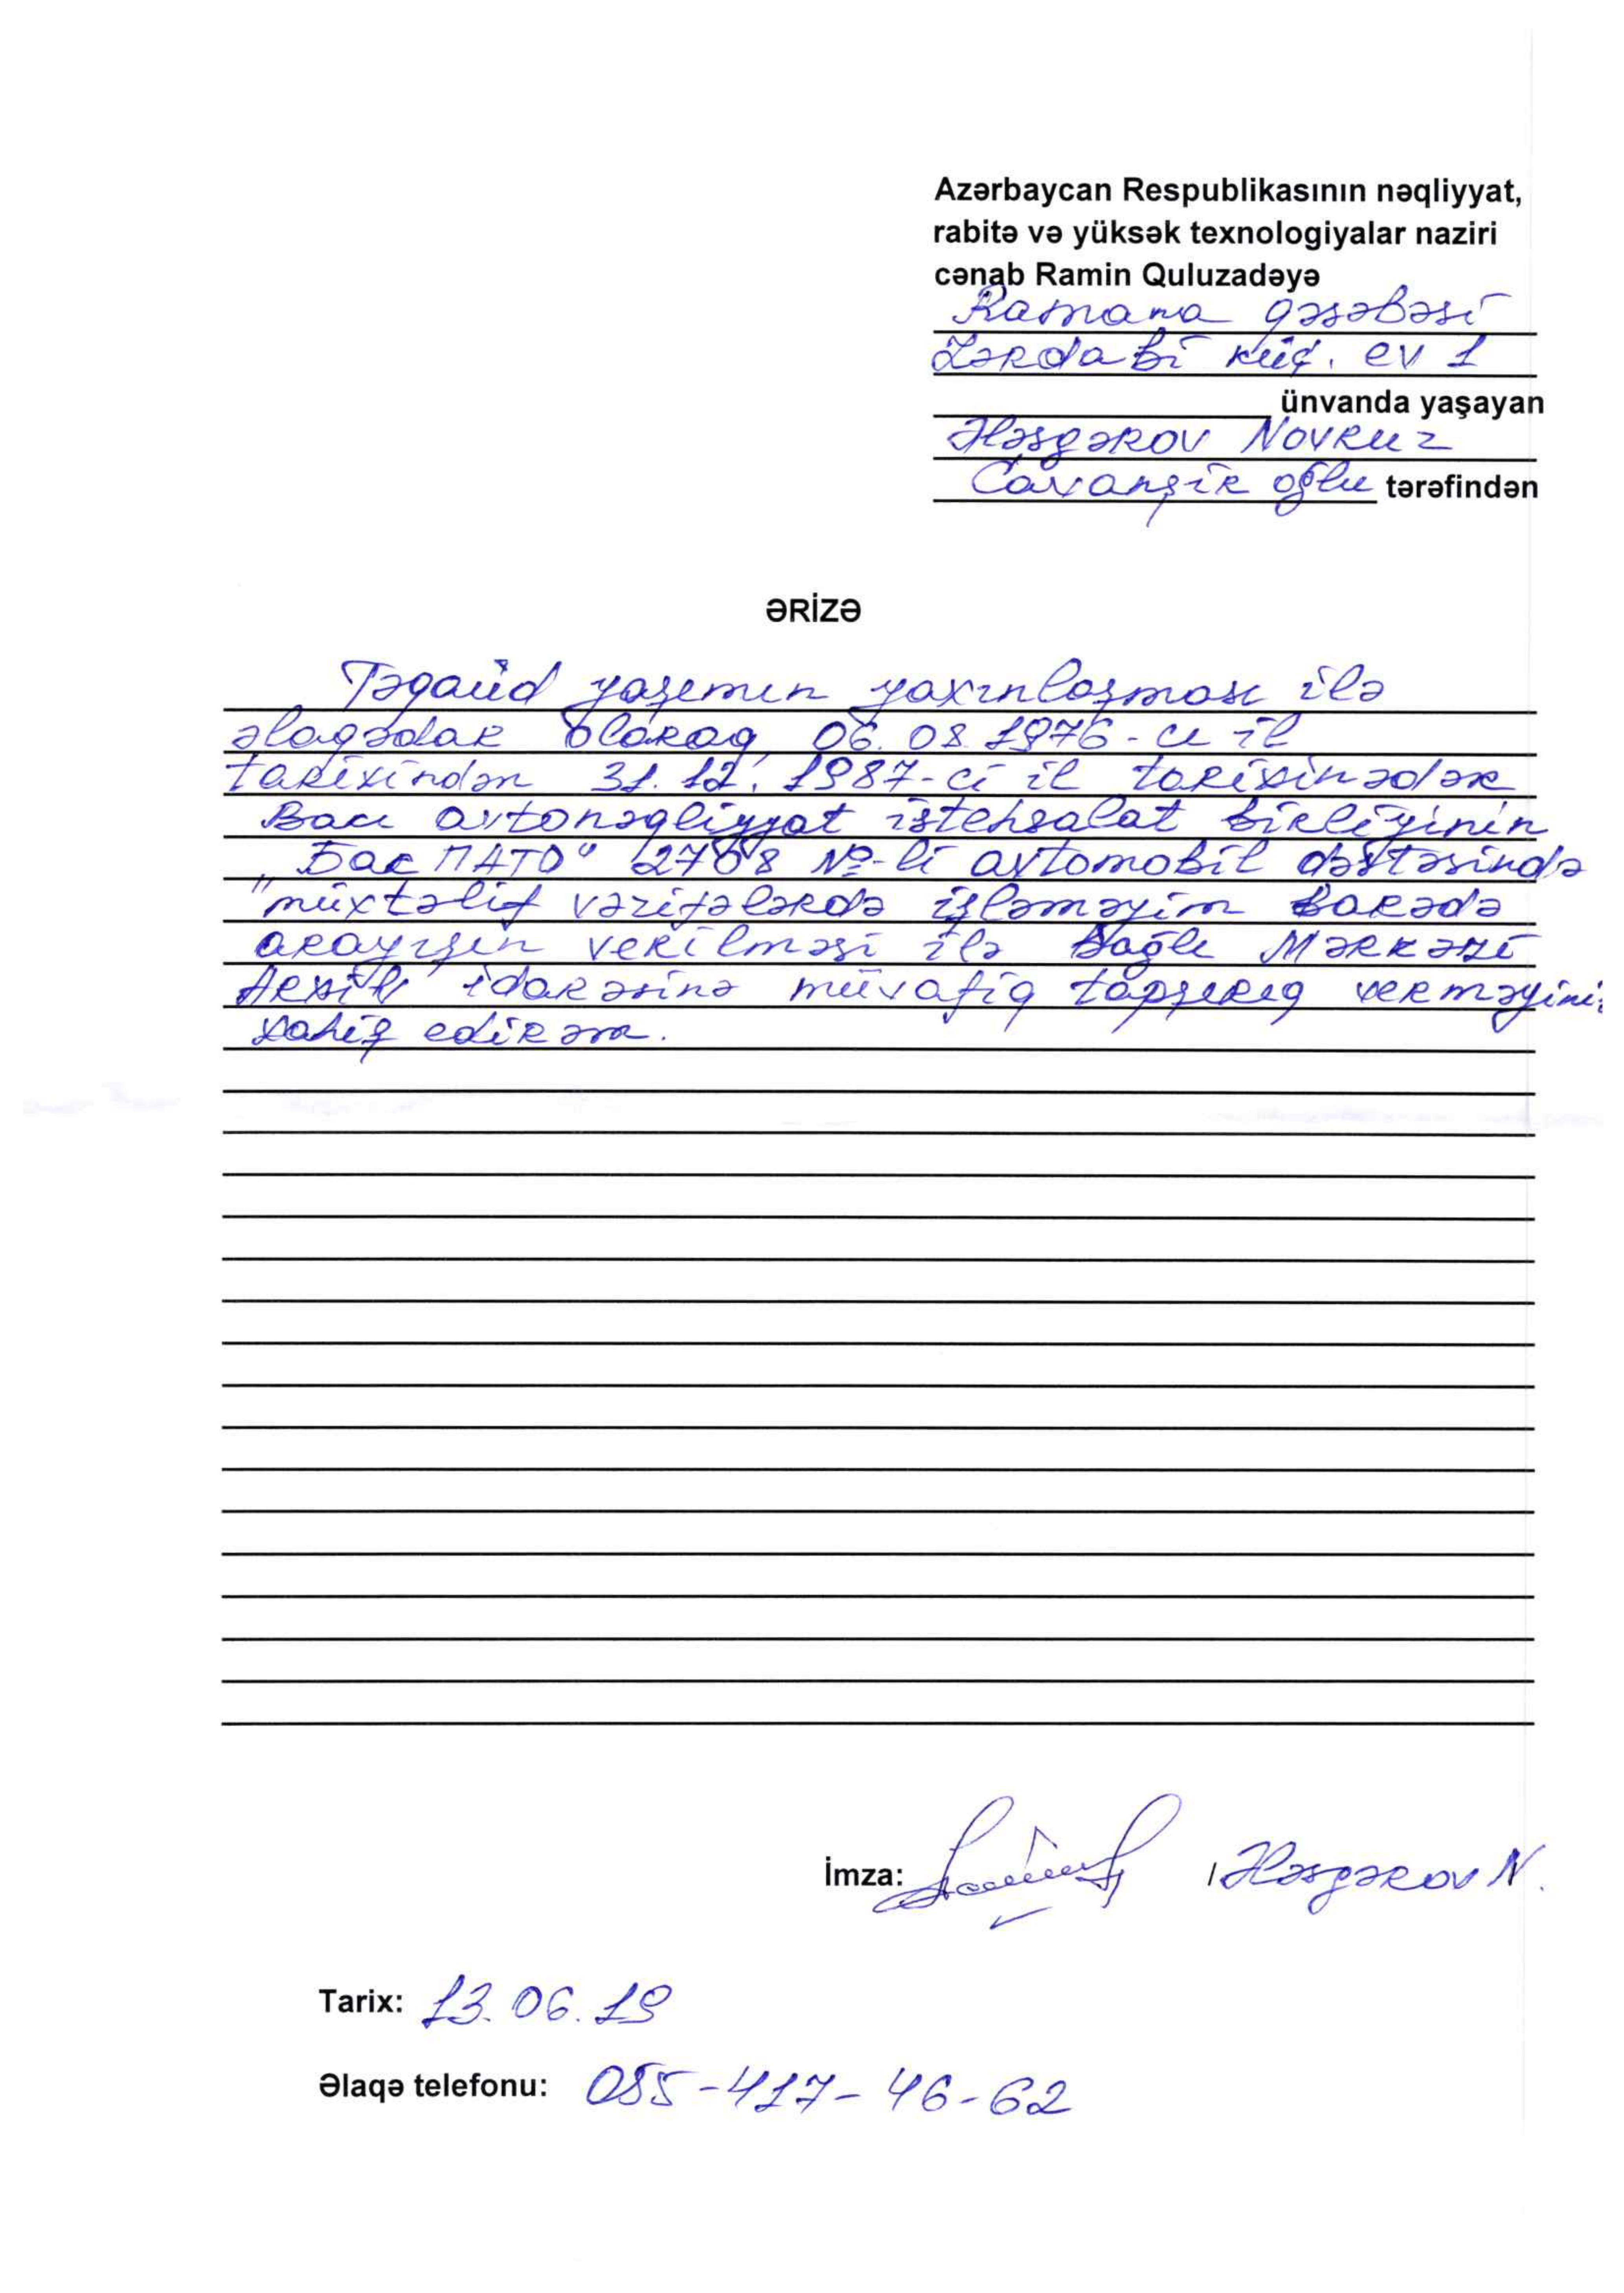 Azərbaycan Respublikasının nəqliyyat,
rabitə və yüksək texnologiyalar naziri
cənab Ramin Quluzadəyə
Ramana qəsəbəsi
Zərdabi küç. ev 1
ünvanda yaşayan
Ələsgərov Novruz
Cavanşir oğlu tərəfindən
ƏRİZƏ
Təqaüd yaşımın yaxınlaşması ilə
əlaqədar olaraq 06.08.1976-cı il
tarixindən 31.12.1987-ci il tarixinədək
Bakı avtonəqliyyat istehsalat birliyinin
"Бак ПАТО" 2708 №-li avtomobil dəstəsində
müxtəlif vəzifələrdə işləməyim barədə
arayışın verilməsi ilə bağlı Mərkəzi
Arxiv idarəsinə müvafiq tapşırıq verməyiniz
xahiş edirəm.
İmza: / Ələsgərov N.
Tarix: 13.06.19
Əlaqə telefonu: 055-417-46-62